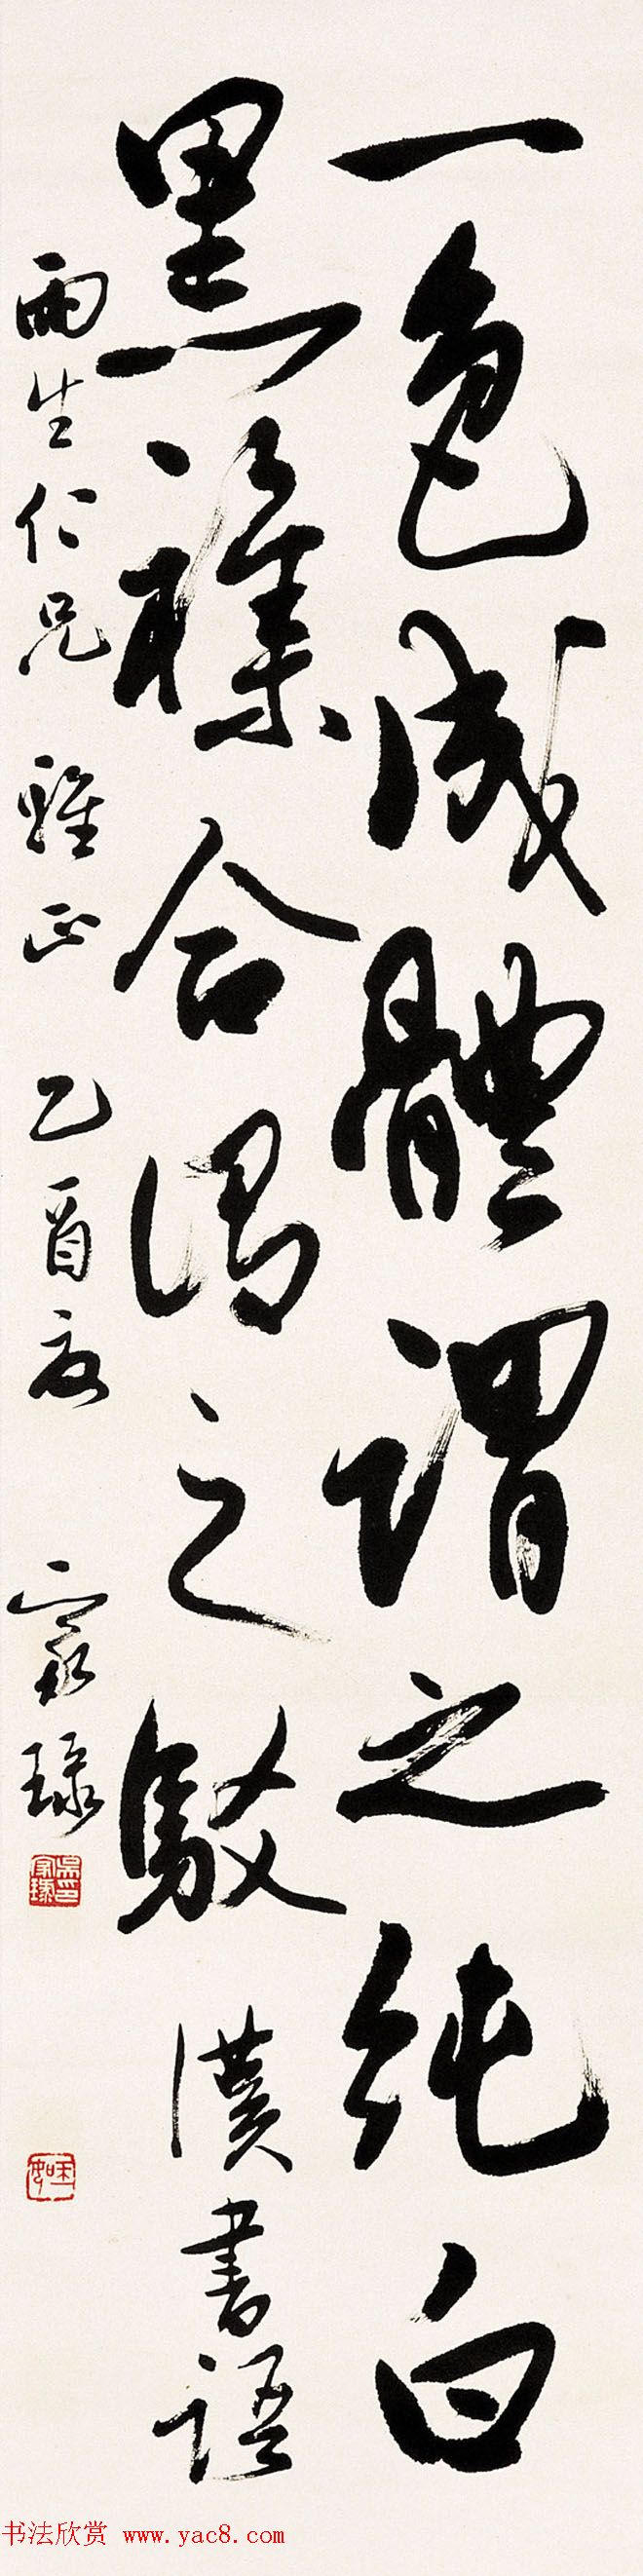 一色成體謂之純白
黑襍合謂之駁 漢書語
雨生仁兄 雅正 乙酉夏 家琭
吳印家琭
書法欣賞 www.yac8.com